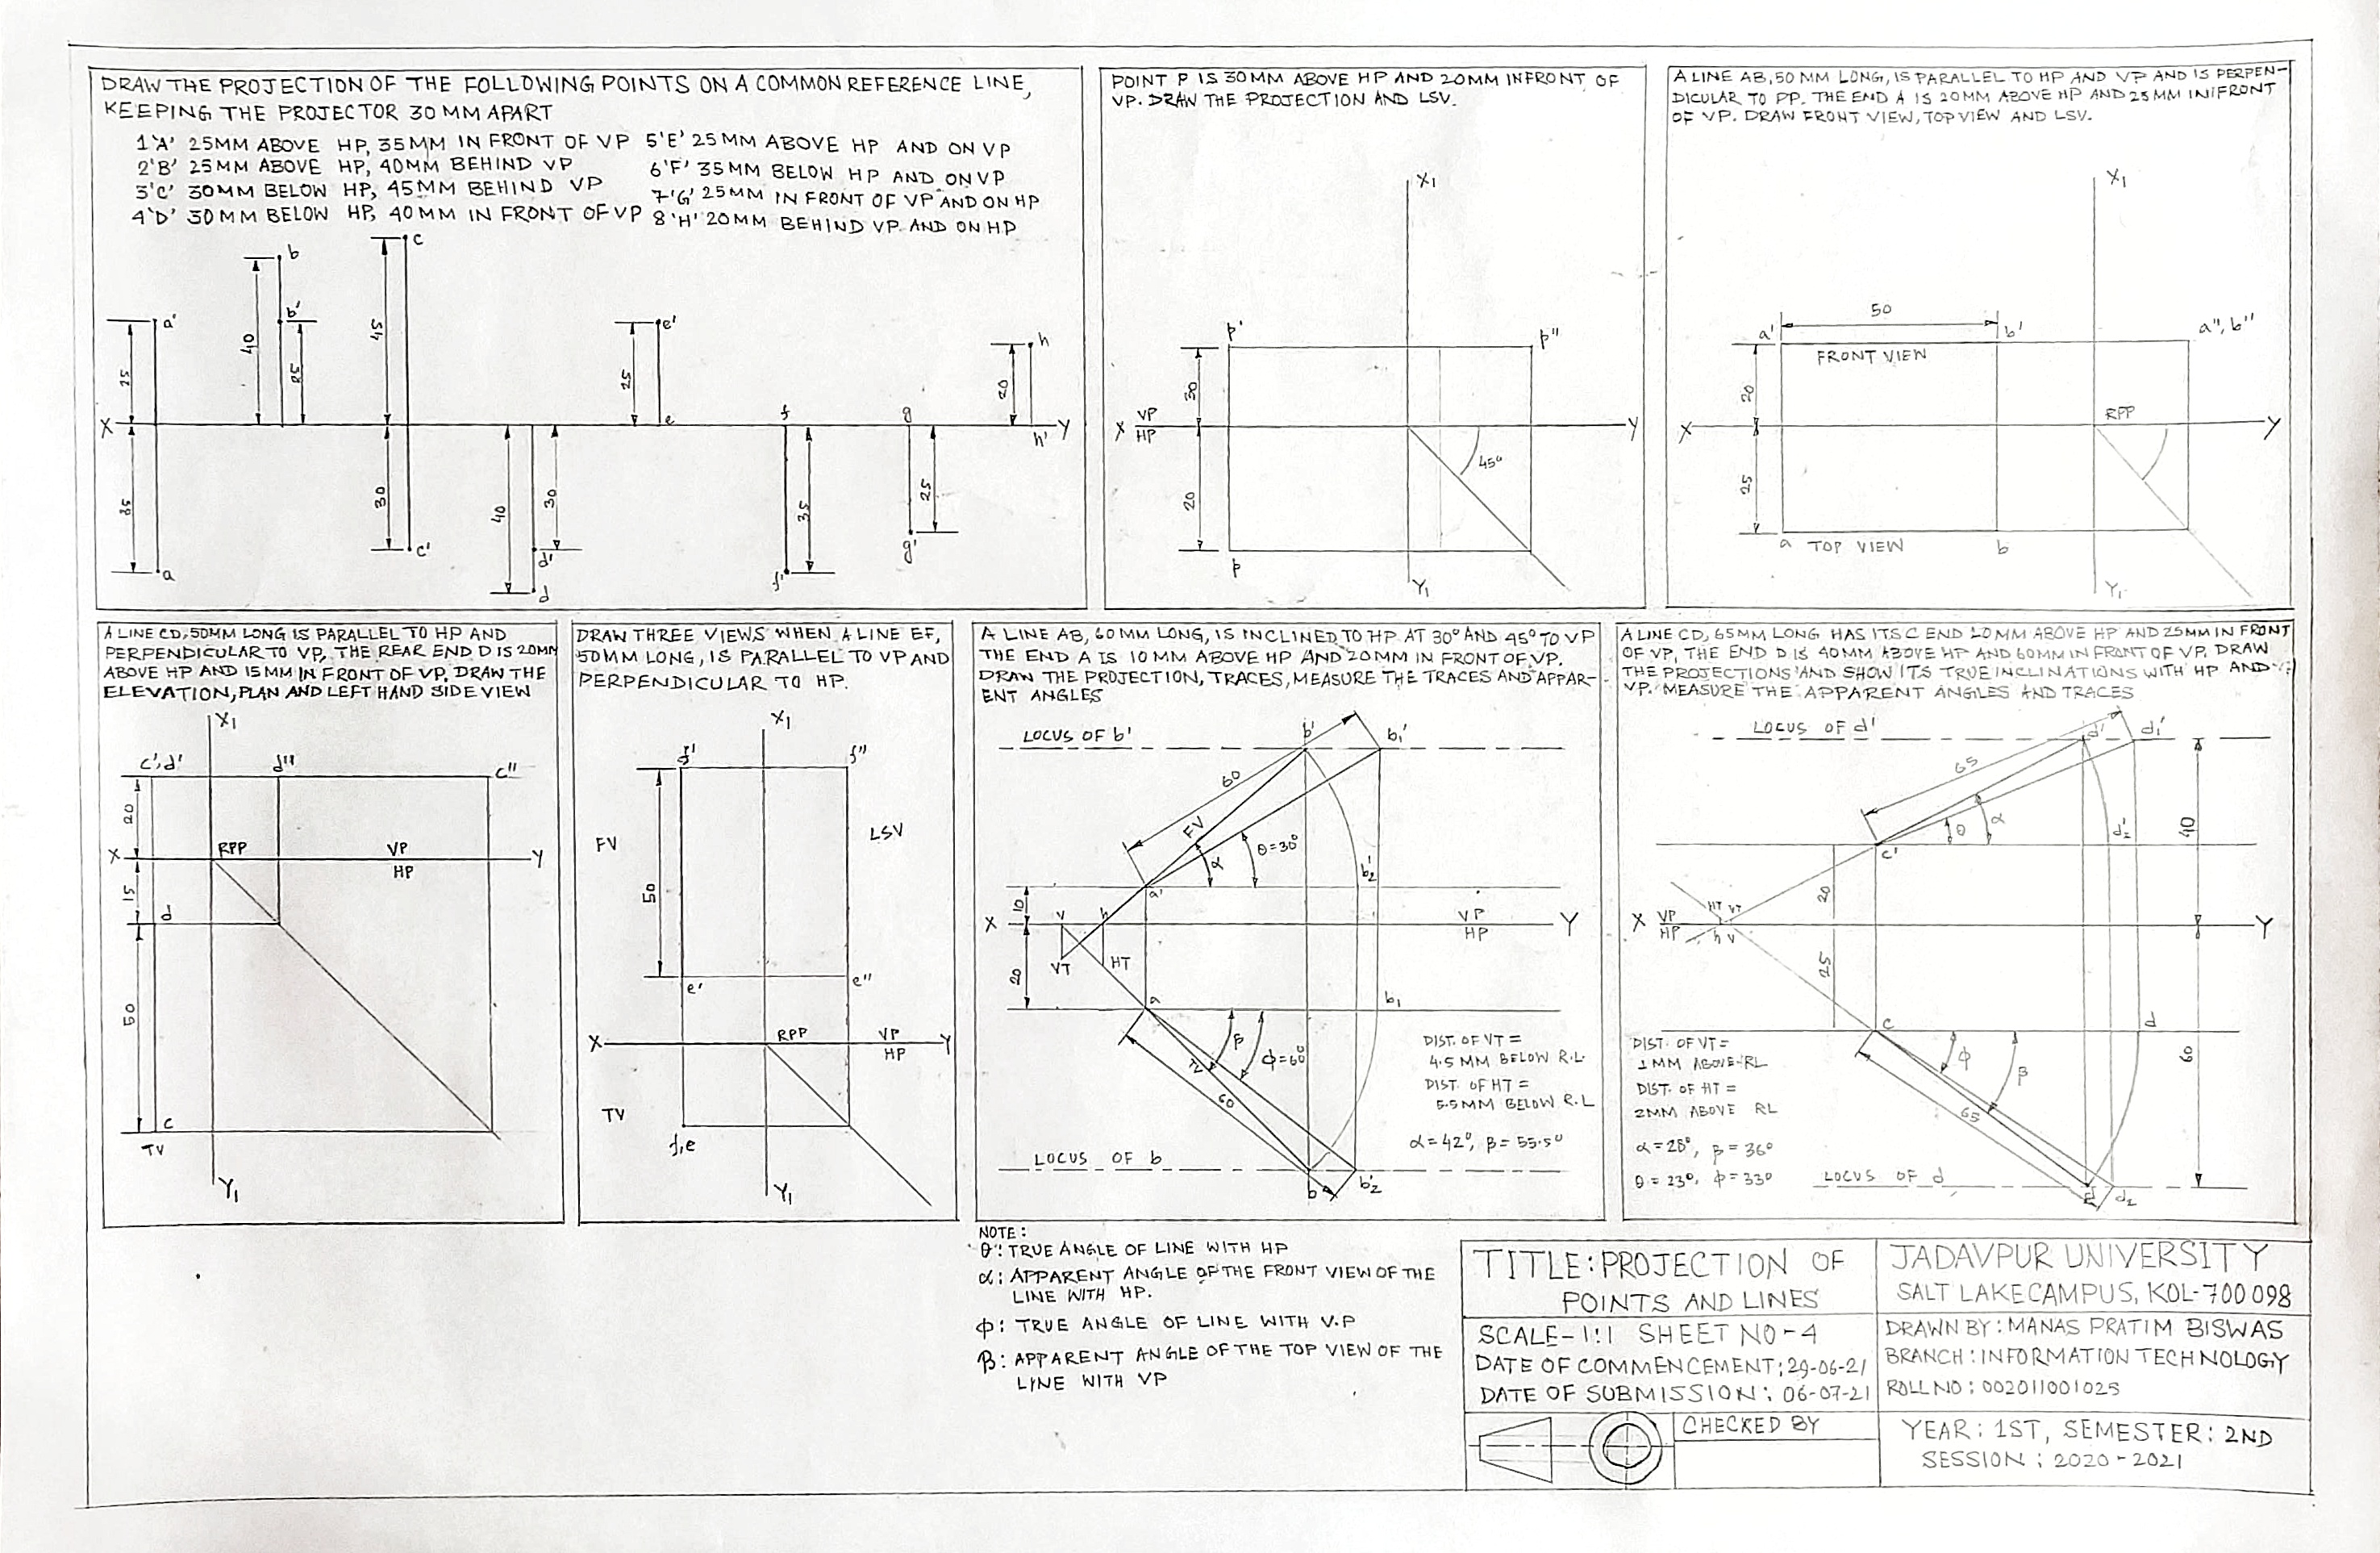 DRAW THE PROJECTION OF THE FOLLOWING POINTS ON A COMMON REFERENCE LINE,
KEEPING THE PROJECTOR 30 MM APART
1'A' 25MM ABOVE HP, 35MM IN FRONT OF VP
2'B' 25MM ABOVE HP, 40MM BEHIND VP
3'C' 30MM BELOW HP, 45MM BEHIND VP
4'D' 30MM BELOW HP, 40MM IN FRONT OF VP
5'E' 25MM ABOVE HP AND ON VP
6'F' 35MM BELOW HP AND ON VP
7'G' 25MM IN FRONT OF VP AND ON HP
8'H' 20MM BEHIND VP AND ON HP
c
b
b'
a'
e'
h
40
45
25
25
25
20
X
e
f
g
h'
Y
35
30
40
30
35
25
c'
d'
g'
a
f'
d
POINT P IS 30MM ABOVE HP AND 20MM INFRONT OF
VP. DRAW THE PROJECTION AND LSV.
X1
p'
p"
30
X VP
HP
Y
45°
20
p
Y1
A LINE AB, 50 MM LONG, IS PARALLEL TO HP AND VP AND IS PERPEN-
DICULAR TO PP. THE END A IS 20MM ABOVE HP AND 25MM IN FRONT
OF VP. DRAW FRONT VIEW, TOP VIEW AND LSV.
X1
50
a'
b'
a", b"
FRONT VIEW
20
RPP
X
Y
25
a TOP VIEW
b
Y1
A LINE CD, 50MM LONG IS PARALLEL TO HP AND
PERPENDICULAR TO VP. THE REAR END D IS 20MM
ABOVE HP AND 15MM IN FRONT OF VP. DRAW THE
ELEVATION, PLAN AND LEFT HAND SIDE VIEW
X1
c',d'
d"
c"
20
RPP
VP
X
Y
HP
15
d
50
c
TV
Y1
DRAW THREE VIEWS WHEN A LINE EF,
50MM LONG, IS PARALLEL TO VP AND
PERPENDICULAR TO HP.
X1
f'
f"
FV
LSV
50
e'
e"
RPP
VP
X
Y
HP
TV
f,e
Y1
A LINE AB, 60 MM LONG, IS INCLINED TO HP AT 30° AND 45° TO VP
THE END A IS 10 MM ABOVE HP AND 20MM IN FRONT OF VP.
DRAW THE PROJECTION, TRACES, MEASURE THE TRACES AND APPAR-
ENT ANGLES
LOCUS OF b'
b'
b1'
60
FV
θ=30°
α
b2'
a'
10
v
h
VP
X
Y
HP
VT
HT
20
a
b1
β
Φ=60°
TV
60
DIST. OF VT =
4.5 MM BELOW R.L.
DIST. OF HT =
5.5MM BELOW R.L
α=42°, β=55.5°
LOCUS OF b
b
b2'
A LINE CD, 65MM LONG HAS ITS C END 20MM ABOVE HP AND 25MM IN FRONT
OF VP, THE END D IS 40MM ABOVE HP AND 60MM IN FRONT OF VP. DRAW
THE PROJECTIONS AND SHOW ITS TRUE INCLINATIONS WITH HP AND
VP. MEASURE THE APPARENT ANGLES AND TRACES
LOCUS OF d'
d'
d1'
65
θ
α
d2'
40
c'
20
HT VT
X VP
HP
h v
Y
25
c
d
DIST. OF VT=
1MM ABOVE RL
DIST. OF HT =
2MM ABOVE RL
Φ
β
60
65
α=28°, β=36°
θ=23°, Φ=33°
LOCUS OF d
d
d2
NOTE:
θ: TRUE ANGLE OF LINE WITH HP
α: APPARENT ANGLE OF THE FRONT VIEW OF THE
LINE WITH HP.
Φ: TRUE ANGLE OF LINE WITH V.P
β: APPARENT ANGLE OF THE TOP VIEW OF THE
LINE WITH VP
TITLE: PROJECTION OF
POINTS AND LINES
SCALE-1:1 SHEET NO-4
DATE OF COMMENCEMENT: 29-06-21
DATE OF SUBMISSION: 06-07-21
CHECKED BY
JADAVPUR UNIVERSITY
SALT LAKE CAMPUS, KOL-700098
DRAWN BY: MANAS PRATIM BISWAS
BRANCH: INFORMATION TECHNOLOGY
ROLL NO: 002011001025
YEAR: 1ST, SEMESTER: 2ND
SESSION: 2020-2021